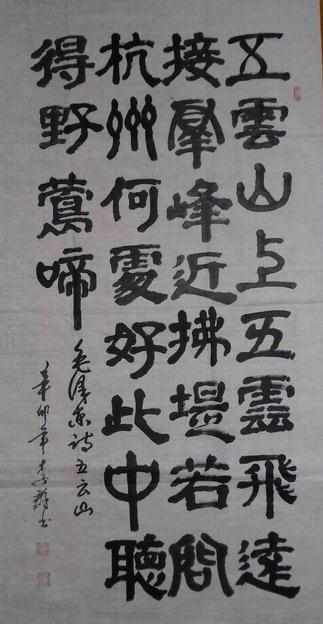 五雲山上五雲飛遠
接羣峰近拂堤若問
杭州何處好此中聽
得野鶯啼
毛泽东诗五云山
辛卯年李书